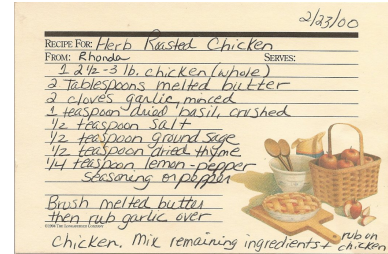 2/23/00
RECIPE FOR: Herb Roasted Chicken
FROM: Rhonda SERVES:
1 2 1/2 - 3 lb. chicken (whole)
2 Tablespoons melted butter
2 cloves garlic, minced
1 teaspoon dried basil, crushed
1/2 teaspoon salt
1/2 teaspoon ground sage
1/2 teaspoon dried thyme
1/4 teaspoon lemon-pepper
seasoning or pepper
Brush melted butter
then rub garlic over
©1998 THE LONGABERGER COMPANY
chicken. Mix remaining ingredients + rub on
chicken